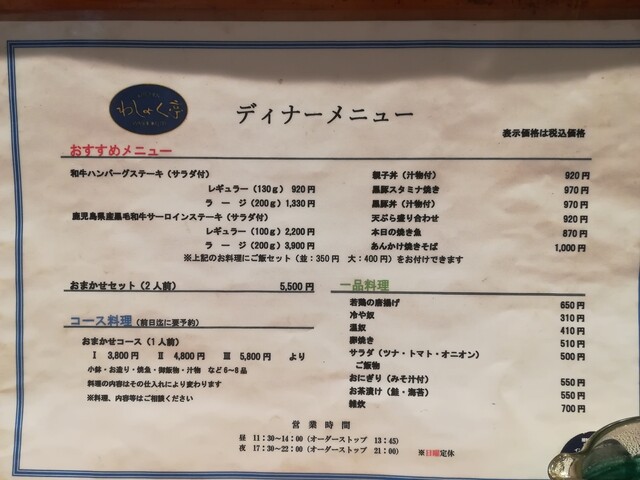 わしょく亭
ディナーメニュー
表示価格は税込価格
おすすめメニュー
和牛ハンバーグステーキ（サラダ付）
レギュラー（130ｇ） 920円
ラ ー ジ（200ｇ）1,330円
鹿児島県産黒毛和牛サーロインステーキ（サラダ付）
レギュラー（100ｇ）2,200円
ラ ー ジ（200ｇ）3,900円
親子丼（汁物付） 920円
黒豚スタミナ焼き 970円
黒豚丼（汁物付） 970円
天ぷら盛り合わせ 920円
本日の焼き魚 870円
あんかけ焼きそば 1,000円
※上記のお料理にご飯セット（並：350円 大：400円）をお付けできます
おまかせセット（２人前） 5,500円
コース料理（前日迄に要予約）
おまかせコース（１人前）
Ⅰ 3,800円 Ⅱ 4,800円 Ⅲ 5,800円 より
小鉢・お造り・焼魚・御飯物・汁物 など6～8品
料理の内容はその仕入れにより変わります
※料理、内容等はご相談ください
一品料理
若鶏の唐揚げ 650円
冷や奴 310円
温奴 410円
卵焼き 510円
サラダ（ツナ・トマト・オニオン） 500円
ご飯物
おにぎり（みそ汁付） 550円
お茶漬け（鮭・海苔） 550円
雑炊 700円
営 業 時 間
昼 11：30～14：00（オーダーストップ 13：45）
夜 17：30～22：00（オーダーストップ 21：00）
※日曜定休